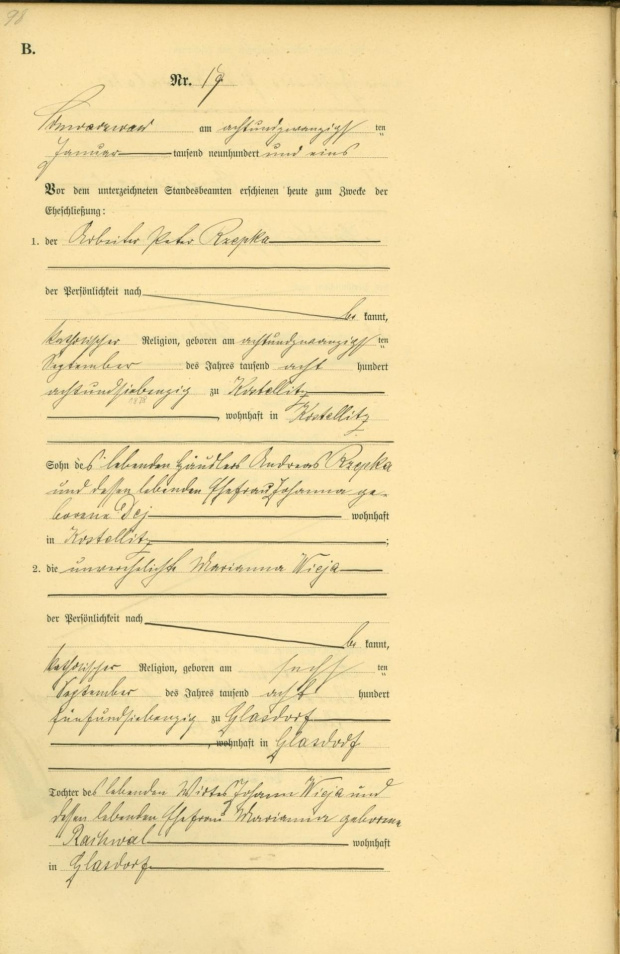 98
B.
Nr. 19
am achtundzwanzigsten
Januar tausend neunhundert und eins
Vor dem unterzeichneten Standesbeamten erschienen heute zum Zwecke der
Eheschließung:
1. der Arbeiter Peter Rzepka
der Persönlichkeit nach
be kannt,
katholischer Religion, geboren am achtundzwanzigsten
September des Jahres tausend acht hundert
achtundsiebenzig zu Kostellitz
, wohnhaft in Kostellitz
Sohn des lebenden Händlers Andreas Rzepka
und dessen lebenden Ehefrau Johanna ge-
borene Dej wohnhaft
in Kostellitz ;
2. die unverehelichte Marianna Wieja
der Persönlichkeit nach
be kannt,
katholischer Religion, geboren am sechsten
September des Jahres tausend acht hundert
fünfundsiebenzig zu Glasdorf
, wohnhaft in Glasdorf
Tochter des lebenden Wirtes Johann Wieja und
dessen lebenden Ehefrau Marianna geborene
Rachwal wohnhaft
in Glasdorf